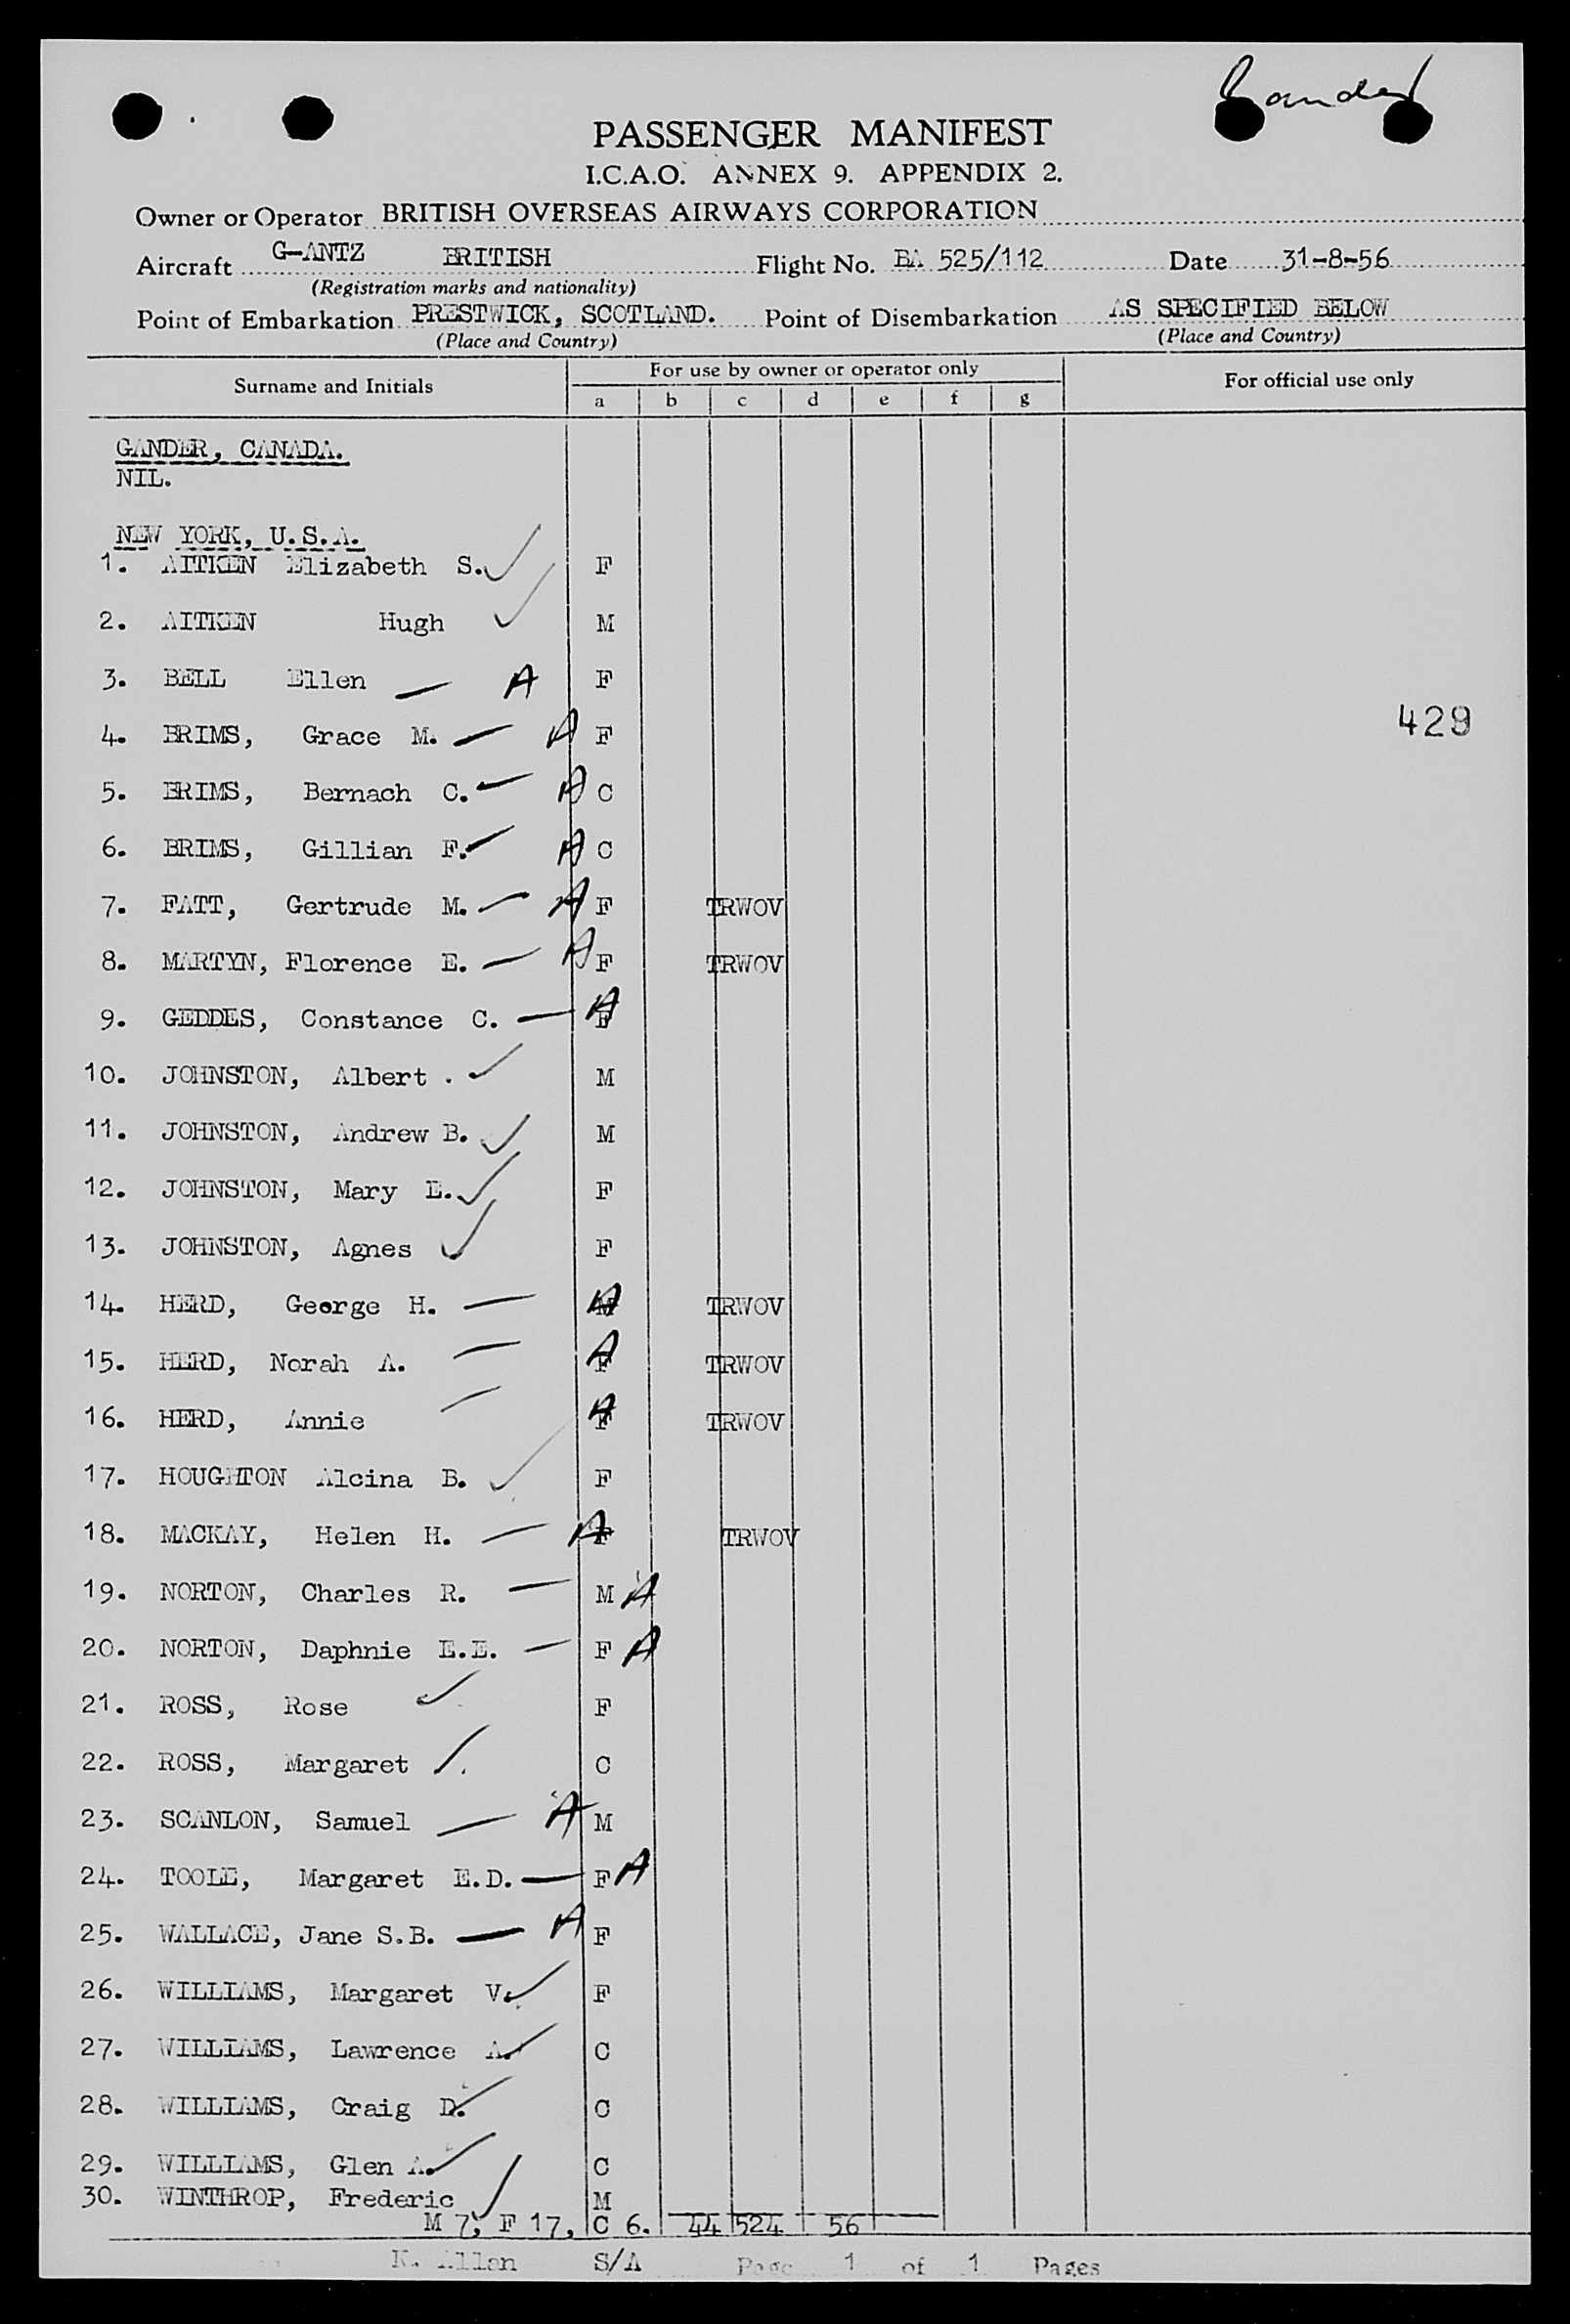 Gander
PASSENGER MANIFEST
I.C.A.O. ANNEX 9. APPENDIX 2.
Owner or Operator BRITISH OVERSEAS AIRWAYS CORPORATION
Aircraft G-ANTZ BRITISH Flight No. BA 525/112 Date 31-8-56
(Registration marks and nationality)
Point of Embarkation PRESTWICK, SCOTLAND. Point of Disembarkation AS SPECIFIED BELOW
(Place and Country) (Place and Country)
Surname and Initials For use by owner or operator only For official use only
a b c d e f g
GANDER, CANADA.
NIL.
NEW YORK, U.S.A.
1. AITKEN Elizabeth S. F
2. AITKEN Hugh M
3. BELL Ellen A F
4. BRIMS, Grace M. A F
429
5. BRIMS, Bernach C. A C
6. BRIMS, Gillian F. A C
7. FATT, Gertrude M. A F TRWOV
8. MARTYN, Florence E. A F TRWOV
9. GEDDES, Constance C. A F
10. JOHNSTON, Albert . M
11. JOHNSTON, Andrew B. M
12. JOHNSTON, Mary E. F
13. JOHNSTON, Agnes F
14. HERD, George H. A M TRWOV
15. HERD, Norah A. A F TRWOV
16. HERD, Annie A F TRWOV
17. HOUGHTON Alcina B. F
18. MACKAY, Helen H. A F TRWOV
19. NORTON, Charles R. M A
20. NORTON, Daphnie E.E. F A
21. ROSS, Rose F
22. ROSS, Margaret C
23. SCANLON, Samuel A M
24. TOOLE, Margaret E.D. F A
25. WALLACE, Jane S.B. A F
26. WILLIAMS, Margaret V. F
27. WILLIAMS, Lawrence A. C
28. WILLIAMS, Craig D. C
29. WILLIAMS, Glen A. C
30. WINTHROP, Frederic M
M 7, F 17, C 6. 44 524 56
K. Allan S/A Page 1 of 1 Pages